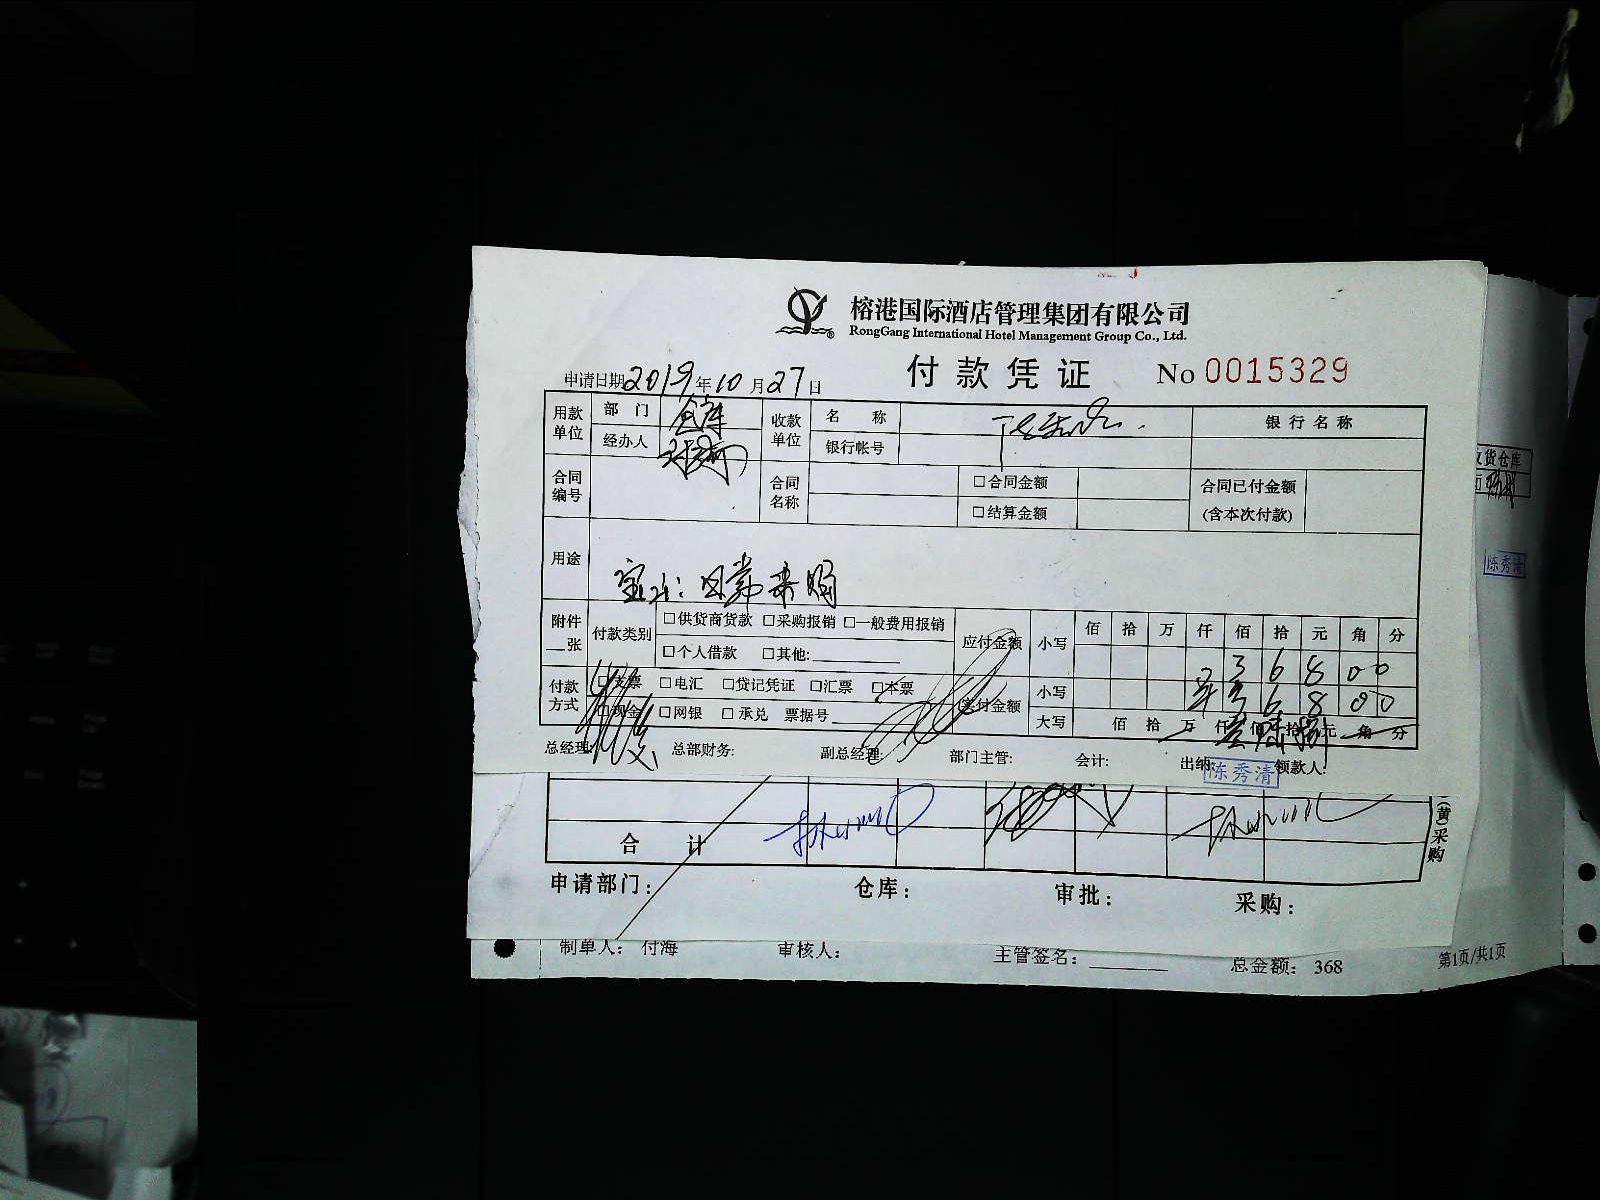 榕港国际酒店管理集团有限公司
RongGang International Hotel Management Group Co., Ltd.
付款凭证 No 0015329
申请日期 2019 年 10 月 27 日
用款单位 部门 仓库 收款单位 名称 银行名称
经办人 银行帐号
合同编号 合同名称 □合同金额 合同已付金额
□结算金额 (含本次付款)
用途
附件 __张 付款类别 □供货商货款 □采购报销 □一般费用报销 应付金额 小写 佰 拾 万 仟 佰 拾 元 角 分
□个人借款 □其他: 3 6 8 0 0
付款方式 □支票 □电汇 □贷记凭证 □汇票 □本票 实付金额 小写 ¥ 3 6 8 0 0
□现金 □网银 □承兑 票据号 大写 佰 拾 万 仟 佰 叁 拾 陆 捌 元 角 分
总经理: 总部财务: 副总经理: 部门主管: 会计: 出纳: 陈秀清 领款人:
合计
申请部门: 仓库: 审批: 采购:
(黄)采购
制单人: 付海 审核人: 主管签名: 总金额: 368 第1页/共1页
货仓库
陈秀清